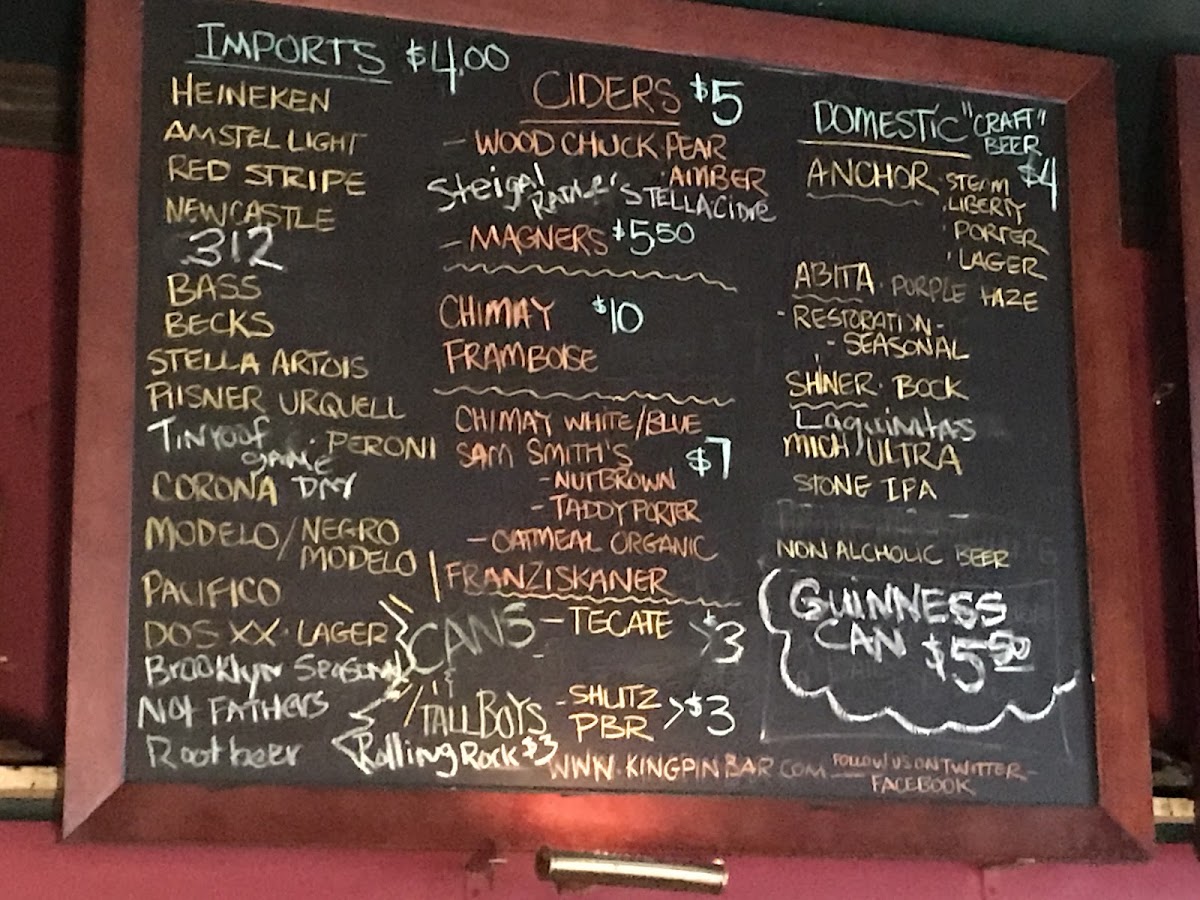 IMPORTS $4.00
HEINEKEN
AMSTEL LIGHT
RED STRIPE
NEWCASTLE
312
BASS
BECKS
STELLA ARTOIS
PILSNER URQUELL
TinRoof · PERONI
game
CORONA DAY
MODELO/NEGRO
MODELO
PACIFICO
DOS XX · LAGER
Brooklyn Seasonal
Not FATHERS
Rootbeer
CIDERS $5
- WOOD CHUCK · PEAR
· AMBER
Steigal
STELLA Cidre
- MAGNERS $5.50
CHIMAY $10
FRAMBOISE
CHIMAY WHITE/BLUE
SAM SMITH'S $7
- NUTBROWN
- TADDY PORTER
- OATMEAL ORGANIC
FRANZISKANER
CANS - TECATE > $3
TALLBOYS - SHLITZ
PBR > $3
Rolling Rock $3
WWW.KINGPINBAR.COM
DOMESTIC "CRAFT"
BEER
$4
ANCHOR · STEAM
· LIBERTY
· PORTER
· LAGER
ABITA · PURPLE HAZE
- RESTORATION -
- SEASONAL
SHINER · BOCK
Laguinitas
MICH ULTRA
STONE IPA
NON ALCHOLIC BEER
GUINNESS
CAN $5.50
FOLLOW US ON TWITTER -
FACEBOOK